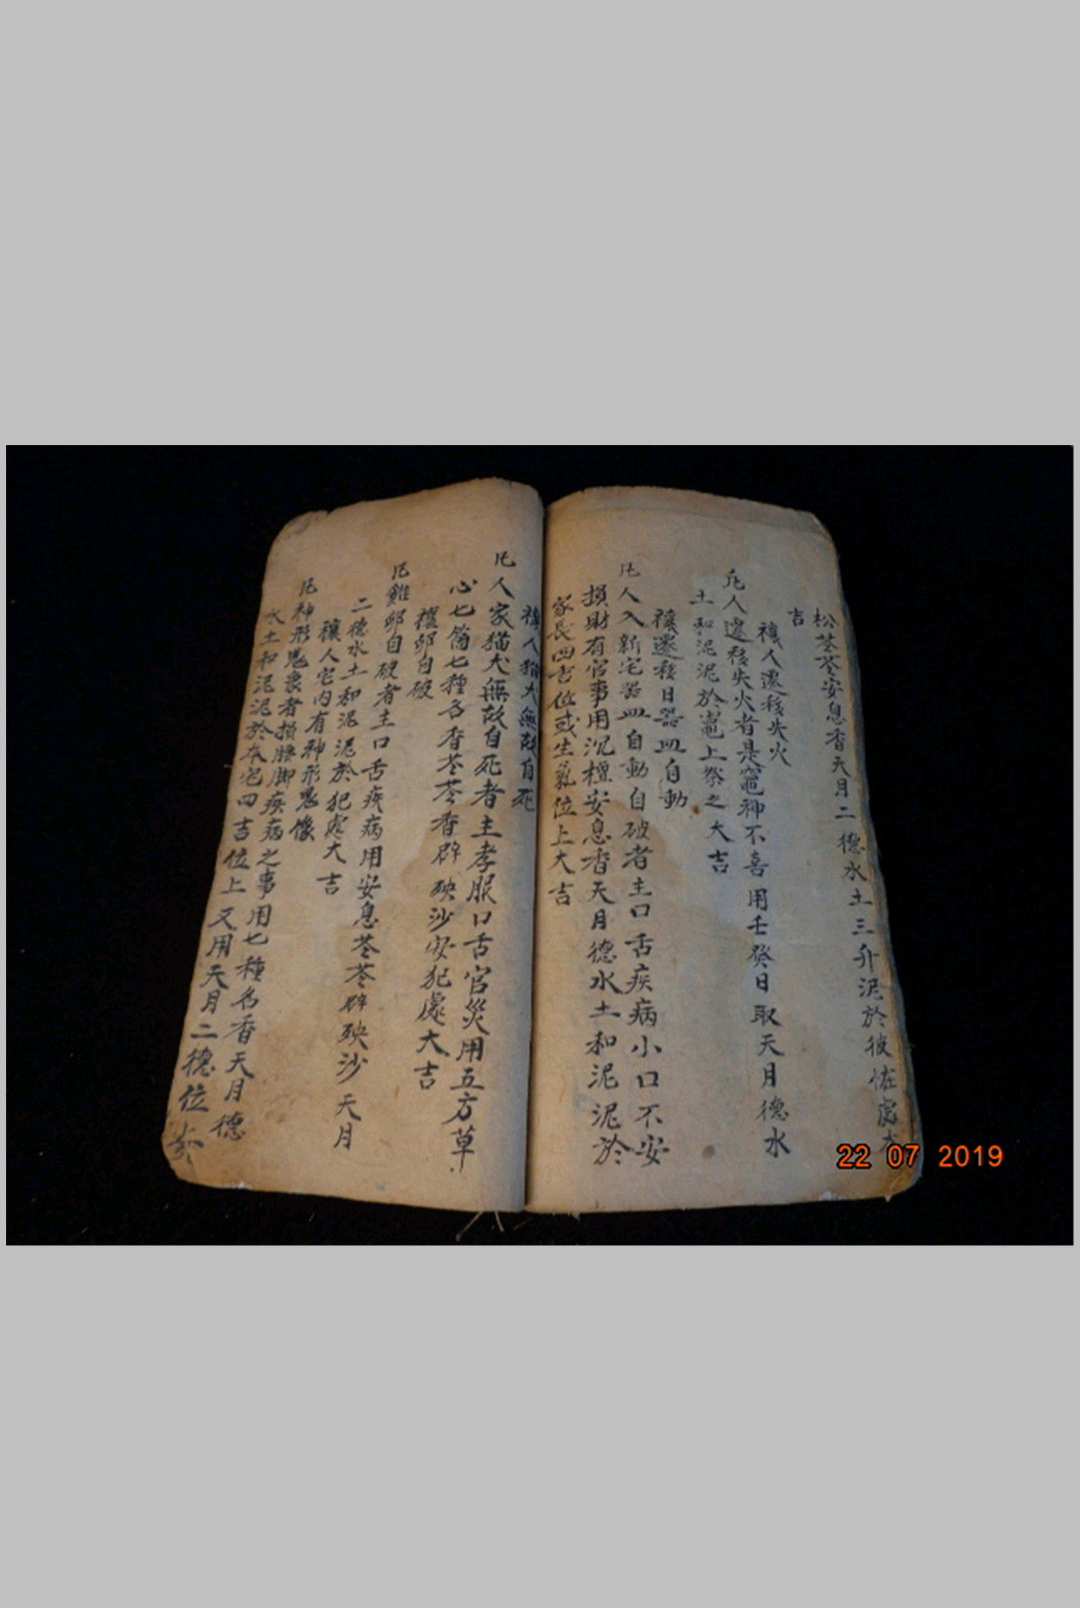 松苓苓安息香天月二德水土三升泥於彼怪處大
吉
禳人遷移失火
凡人遷移失火者是竈神不喜用壬癸日取天月德水
土和泥泥於竈上祭之大吉
禳遷移日器皿自動
凡人入新宅器皿自動自破者主口舌疾病小口不安
損財有官事用沉檀安息香天月德水土和泥泥於
家長四吉位或生氣位上大吉
禳人猫犬無故自死
凡人家猫犬無故自死者主孝服口舌官災用五方草
心七箇七種名香苓苓香辟殃沙安犯處大吉
禳卵自破
凡雞卵自破者主口舌疾病用安息苓苓辟殃沙天月
二德水土和泥泥於犯處大吉
禳人宅內有神形鬼像
凡神形鬼像者損腰脚疾病之事用七種名香天月德
水土和泥泥於本宅四吉位上又用天月二德位
22 07 2019